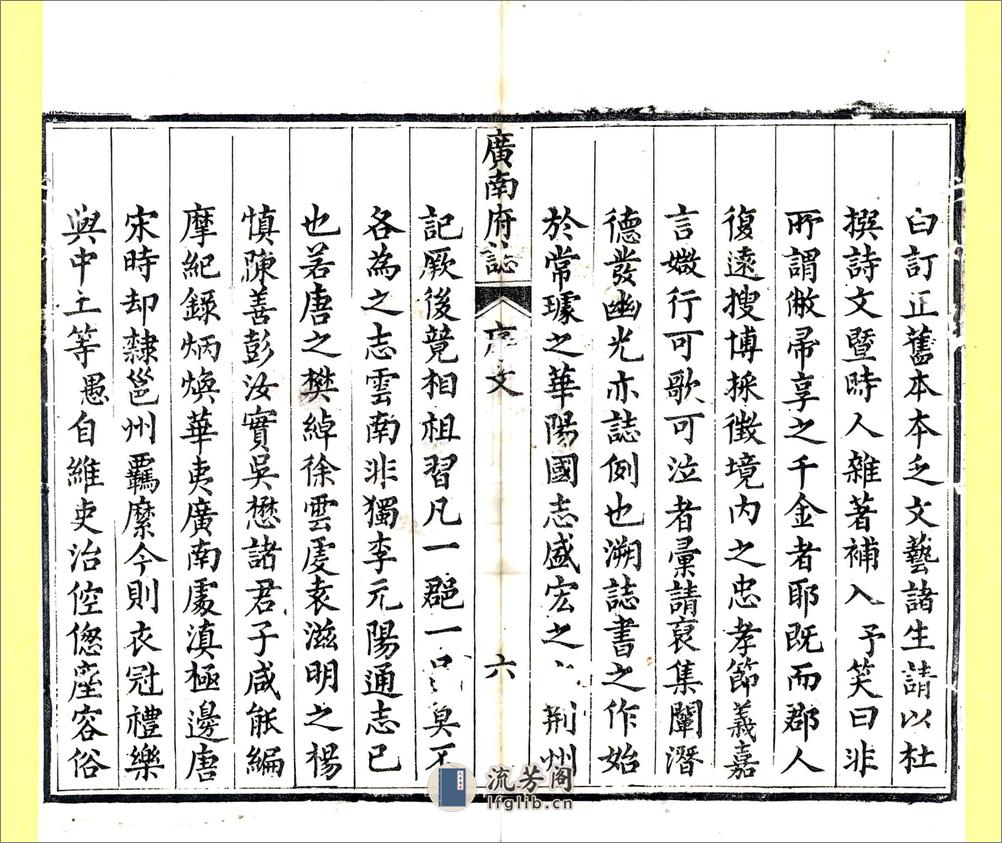 白訂正舊本本乏文藝諸生請以杜
撰詩文暨時人雜著補入予笑曰非
所謂敝帚享之千金者耶既而郡人
復遠搜博採徵境內之忠孝節義嘉
言媺行可歌可泣者彙請裒集闡潛
德發幽光亦誌例也溯誌書之作始
於常璩之華陽國志盛宏之荆州
廣南府誌
序文
六
記厥後競相祖習凡一郡一莫不
各為之志雲南非獨李元陽通志已
也若唐之樊綽徐雲虔袁滋明之楊
慎陳善彭汝實吳懋諸君子咸能編
摩紀錄炳煥華夷廣南處滇極邊唐
宋時却隸邕州羈縻今則衣冠禮樂
與中土等愚自維吏治倥傯塵容俗
流芳阁
lfglib.cn